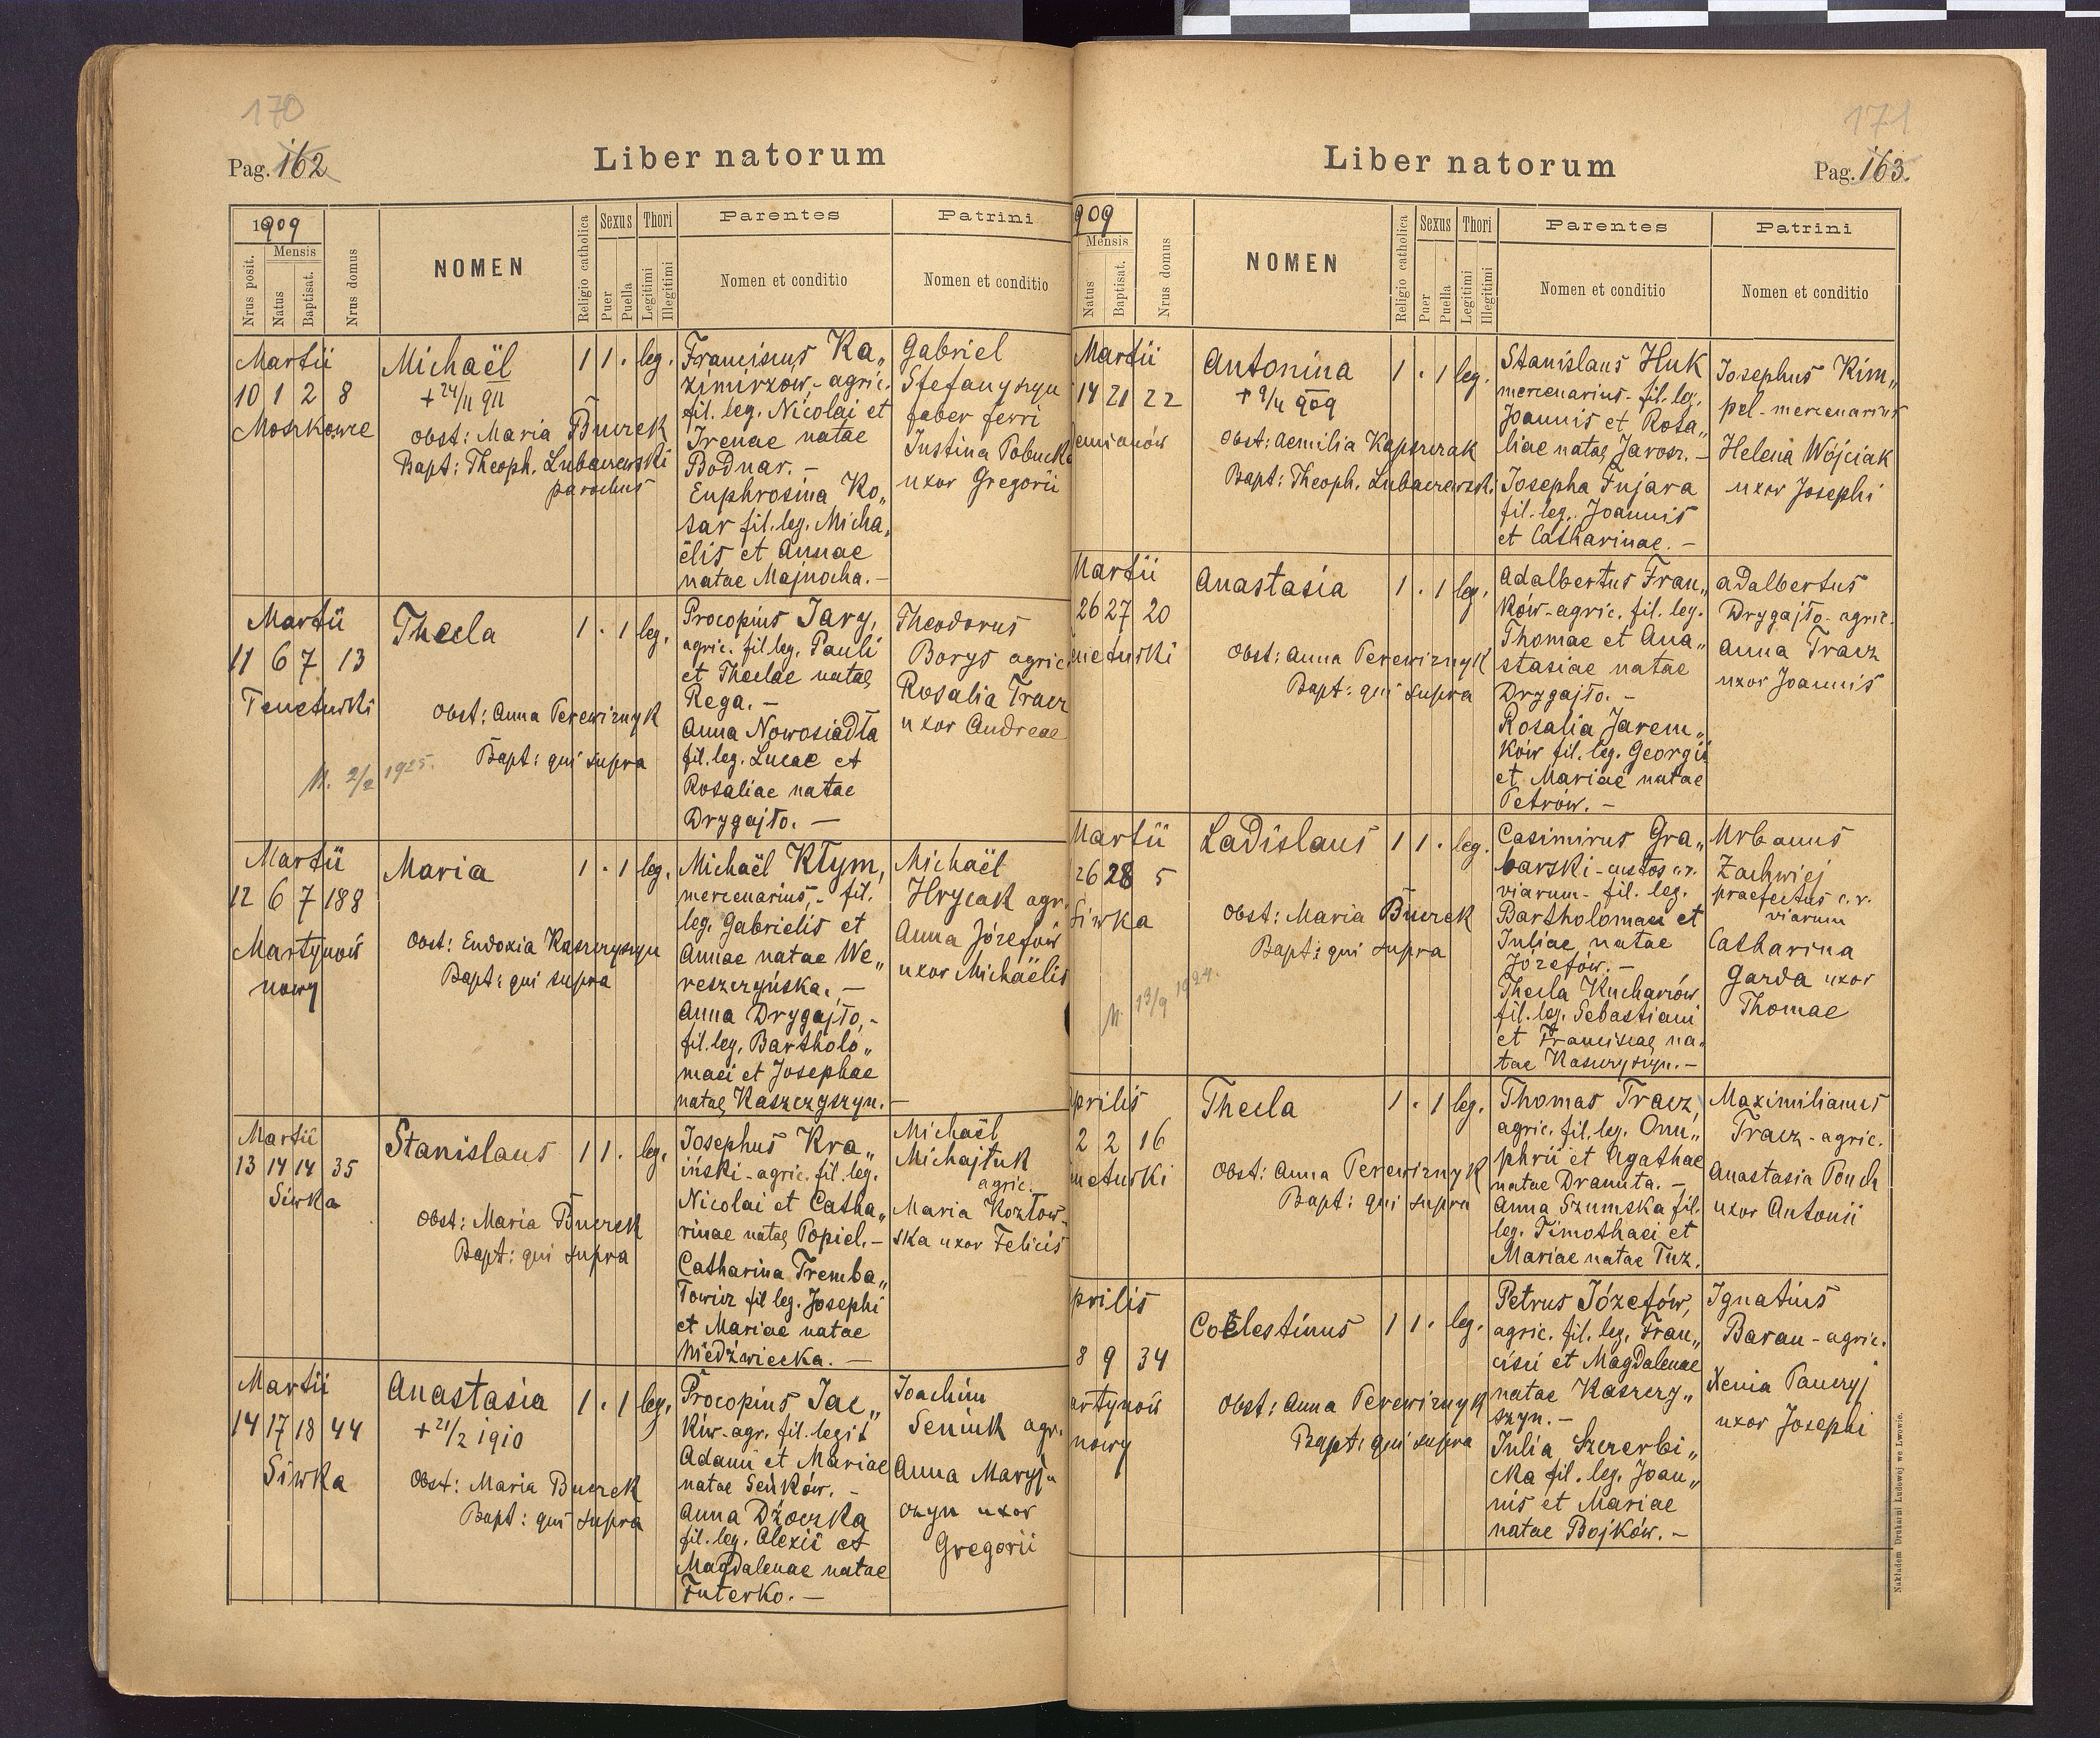 170
Pag. 162
Liber natorum
1909
Nrus posit.
Mensis
Natus
Baptisat.
Nrus domus
NOMEN
Religio catholica
Sexus
Puer
Puella
Thori
Legitimi
Illegitimi
Parentes
Nomen et conditio
Patrini
Nomen et conditio
Martii
10 1 2 8
Moszkowce
Michaël
+ 24/11 911
Obst: Maria Burek
Bapt: Theoph. Lubaczewski
parochus
1 1 . leg.
Franciscus Ka„
zimirzów,- agric.
fil. leg. Nicolai et
Irenae natae
Bodnar. -
Euphrosina Ko„
sar fil. leg. Micha„
ëlis et Annae
natae Majnocha. -
Gabriel
Stefanyszyn
faber ferri
Justina
uxor Gregorii
Martii
11 6 7 13
Tenetniki
Thecla
Obst: Anna Perewiznyk
Bapt: qui supra
M. 2/2 1925.
1 . 1 leg.
Procopius Jary,
agric. fil leg. Pauli
et Theclae natae
Rega. -
Anna Nowosiadła
fil. leg. Lucae et
Rosaliae natae
Drygajło. -
Theodorus
Borys agric.
Rosalia Tracz
uxor Andreae
Martii
12 6 7 188
Martynów
nowy
Maria
Obst: Eudoxia Kaszczyszyn
Bapt: qui supra
1 . 1 leg.
Michaël Kłym,
mercenarius,- fil.
leg. Gabrielis et
Annae natae We„
reszczyńska. -
Anna Drygajło,-
fil. leg. Bartholo„
maei et Josephae
natae Kaszczyszyn. -
Michaël
Hrycak agr.
Anna Józefów
uxor Michaëlis
Martii
13 14 14 35
Siwka
Stanislaus
Obst: Maria Burek
Bapt: qui supra
1 1 . leg.
Josephus Kra„
iński - agric. fil. leg.
Nicolai et Catha„
rinae natae Popiel. -
Catharina Tremba„
łowicz fil leg. Josephi
et Mariae natae
Niedźwiecka. -
Michaël
Michajluk
agric.
Maria Kozłow„
ska uxor Felicis
Martii
14 17 18 44
Siwka
Anastasia
+ 21/2 1910
Obst: Maria Burek
Bapt: qui supra
1 . 1 leg.
Procopius Jac„
ków - agr. fil. legit
Adami et Mariae
natae Seńków. -
Anna Dżoczka
fil. leg. Alexii et
Magdalenae natae
Futerko. -
Joachim
Seniuk agr.
Anna Maryj„
czyn uxor
Gregorii
171
Liber natorum
Pag. 163.
909
Mensis
Natus
Baptisat.
Nrus domus
NOMEN
Religio catholica
Sexus
Puer
Puella
Thori
Legitimi
Illegitimi
Parentes
Nomen et conditio
Patrini
Nomen et conditio
Martii
14 21 22
emianów
Antonina
+ 9/4 909
Obst: Aemilia Kapszczak
Bapt: Theoph. Lubaczewsk.
1 . 1 leg.
Stanislaus Huk
mercenarius - fil. leg.
Joannis et Rosa„
liae natae Jarosz. -
Josepha Fujara
fil. leg. Joannis
et Catharinae. -
Josephus Kim„
pel - mercenarius
Helena Wójciak
uxor Josephi
Martii
26 27 20
enetniki
Anastasia
Obst: Anna Perewiznyk
Bapt: qui supra
1 . 1 leg.
Adalbertus Fran„
ków - agric. fil. leg.
Thomae et Ana„
stasiae natae
Drygajło. -
Rosalia Jarem„
ków fil. leg. Georgii
et Mariae natae
Petrów. -
Adalbertus
Drygajło - agric.
Anna Tracz
uxor Joannis
Martii
26 28 5
Siwka
Ladislaus
Obst: Maria Burek
Bapt: qui supra
M. 13/9 1924.
1 1 . leg.
Casimirus Gra„
barski - custos c.r.
viarum - fil. leg.
Bartholomaei et
Juliae natae
Józefów. -
Thecla Kucharów
fil. leg. Sebastiani
et Franciscae na„
tae Kaszczyszyn. -
Urbanus
Zachwiej
praefectus c. r.
viarum
Catharina
Garda uxor
Thomae
prilis
2 2 16
netniki
Thecla
Obst: Anna Perewiznyk
Bapt: qui supra
1 . 1 leg.
Thomas Tracz,
agric. fil. leg. Onu„
phrii et Agathae
natae Dranuta. -
Anna Szumska fil.
leg. Timothaei et
Mariae natae Tuz.
Maximilianus
Tracz - agric.
Anastasia
uxor Antonii
prilis
8 9 34
artynów
nowy
Coelestinus
Obst: Anna Perewiznyk
Bapt: qui supra
1 1 . leg.
Petrus Józefów,
agric. fil. leg. Fran„
cisci et Magdalenae
natae Kaszczy„
szyn. -
Julia Szczerbi„
cka fil. leg. Joan„
nis et Mariae
natae Bojków. -
Ignatius
Baran - agric.
Xenia Panczyj
uxor Josephi
Nakładem Drukarni Ludowej we Lwowie.